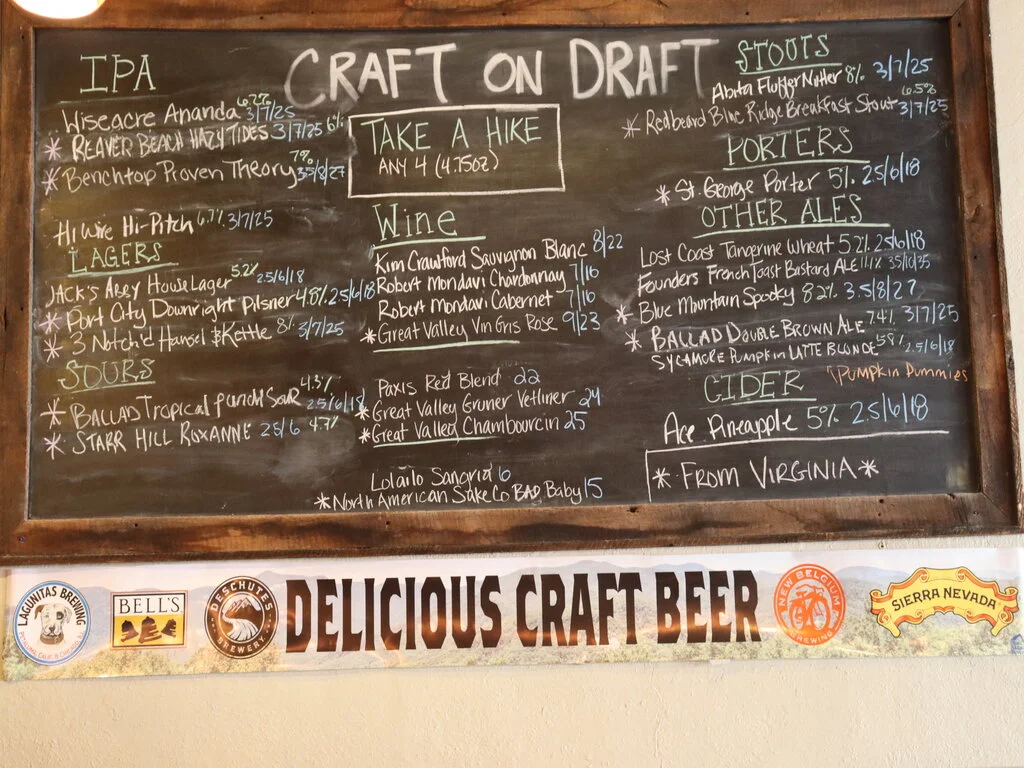 CRAFT ON DRAFT
IPA
Wiseacre Ananda 6.2% 3/7/25
* REAVER BEACH HAZY TIDES 3/7/25 6%
* Benchtop Proven Theory 7% 3.5/8/27
Hi Wire Hi-Pitch 6.7% 3/7/25
LAGERS
JACK'S ABBY House Lager 5.2% 2.5/6/18
* Port City Downright Pilsner 4.8% 2.5/6/18
* 3 Notch'd Hansel & Kettle 8% 3/7/25
SOURS
* BALLAD Tropical punch Sour 4.3% 2.5/6/18
* STARR HILL ROXANNE 2.5/6 4.7%
TAKE A HIKE
ANY 4 (4.75oz)
Wine
Kim Crawford Sauvignon Blanc 8/22
Robert Mondavi Chardonnay 7/16
Robert Mondavi Cabernet 7/16
* Great Valley Vin Gris Rose 9/23
Paxis Red Blend 22
* Great Valley Gruner Vetliner 24
* Great Valley Chambourcin 25
Lolailo Sangria 6
* North American Sake Co BAD Baby 15
STOUTS
Abita Fluffer Nutter 8% 3/7/25
* Redbeard Blue Ridge Breakfast Stout 6.5% 3/7/25
PORTERS
* St. George Porter 5% 2.5/6/18
OTHER ALES
Lost Coast Tangerine Wheat 5.2% 2.5/6/18
Founders French Toast Bastard ALE
* Blue Mountain Spooky 8.2% 3.5/8/27
* BALLAD DOUBLE BROWN ALE 7.4% 3/7/25
SYCAMORE Pumpkin LATTE BLONDE 5.8% 2.5/6/18
PUMPKIN DUMMIES
CIDER
Ace Pineapple 5% 2.5/6/18
* FROM VIRGINIA *
LAGUNITAS BREWING
BELL'S
DESCHUTES BREWERY
DELICIOUS CRAFT BEER
NEW BELGIUM BREWING
SIERRA NEVADA